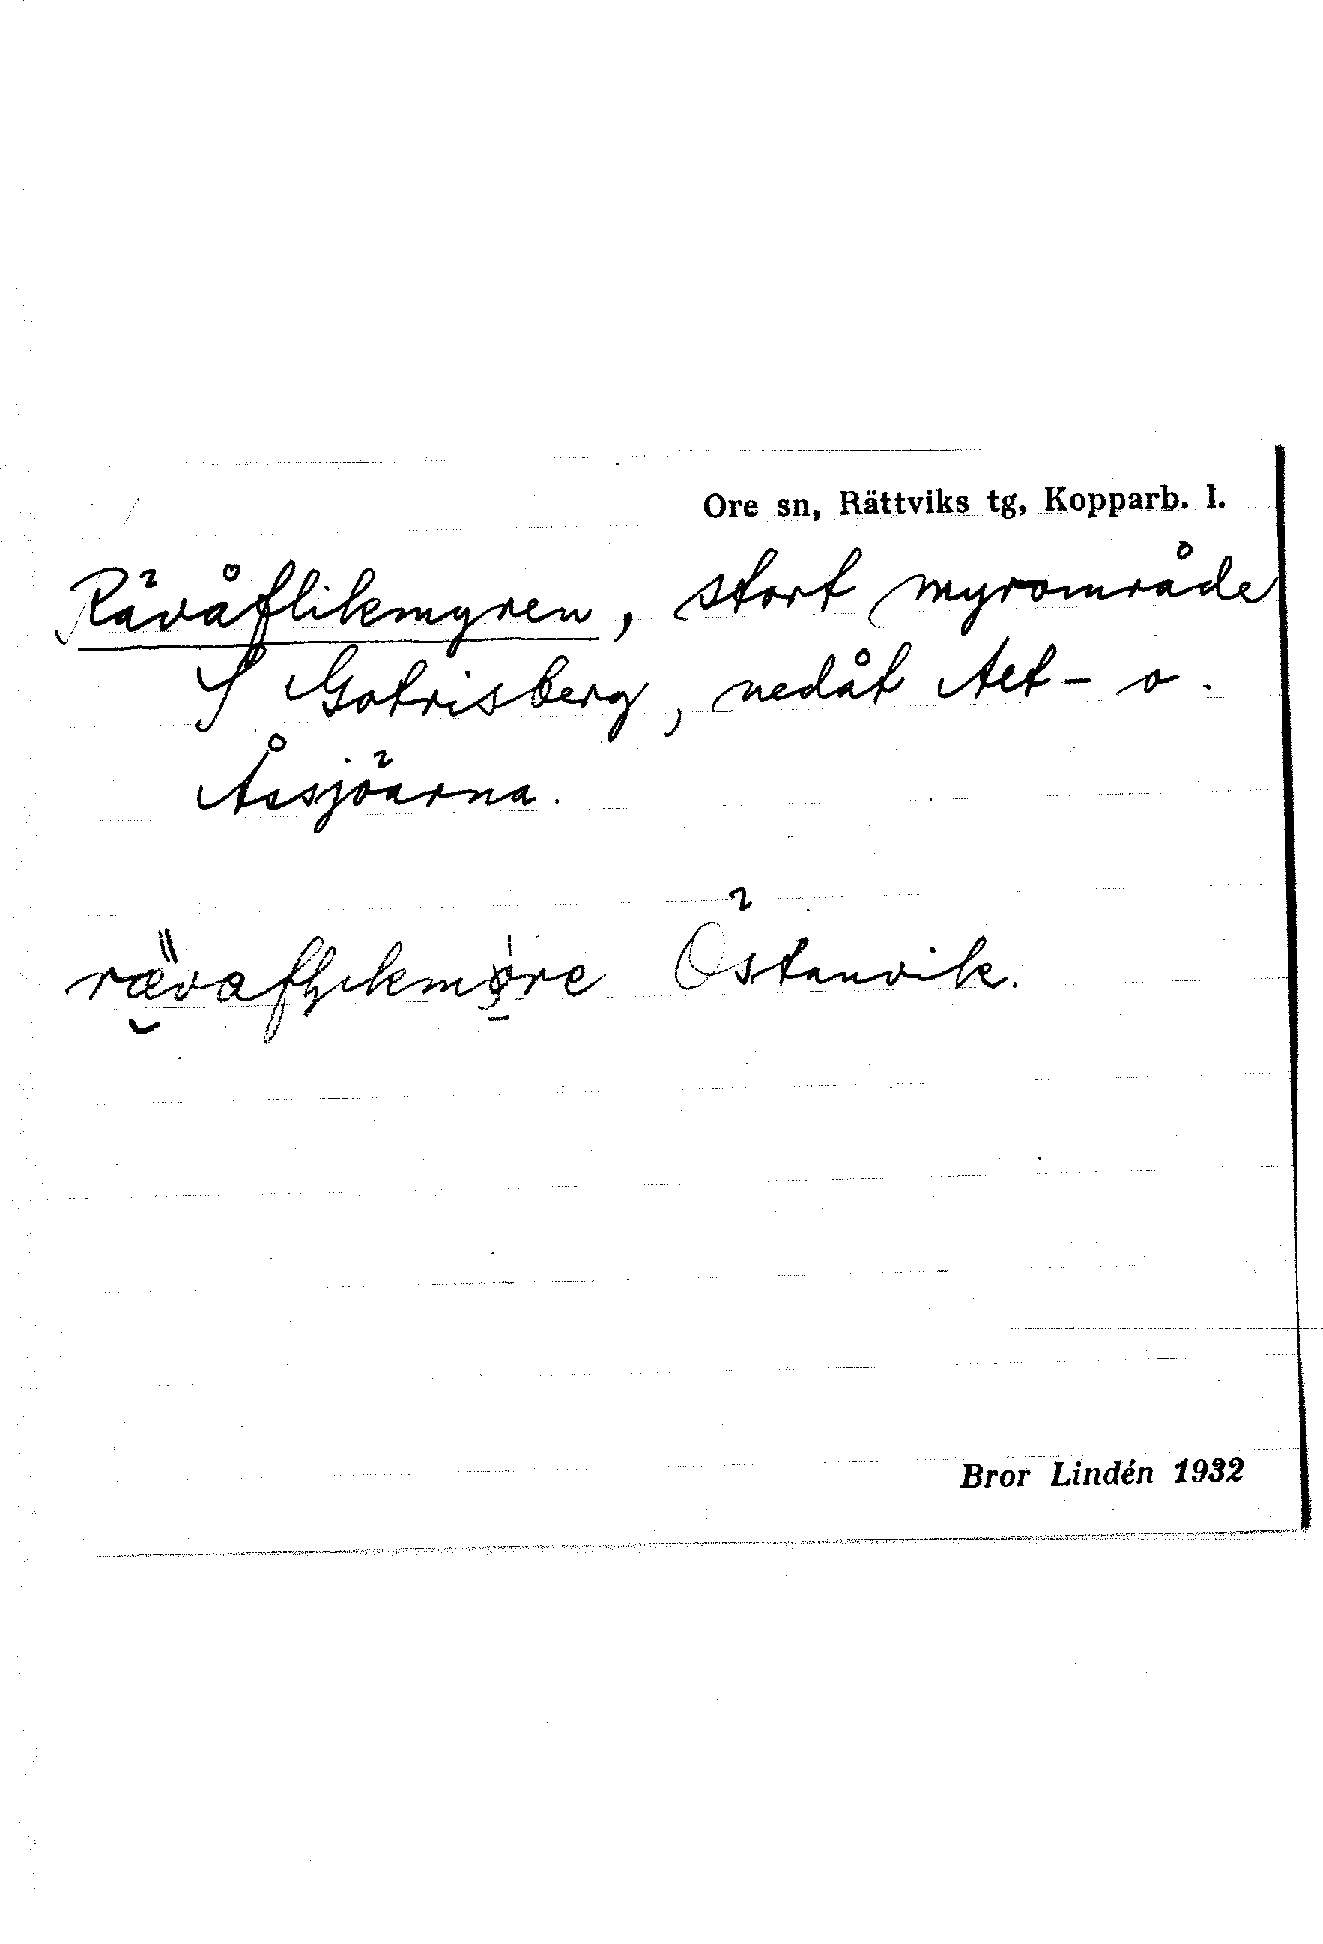 Ore sn, Rättviks tg, Kopparb. l.
Räväflikmyren, stort myrområde
S Gotrisberg, nedåt Aet- o.
Åssjöarna.
Östanvik.
Bror Lindén 1932